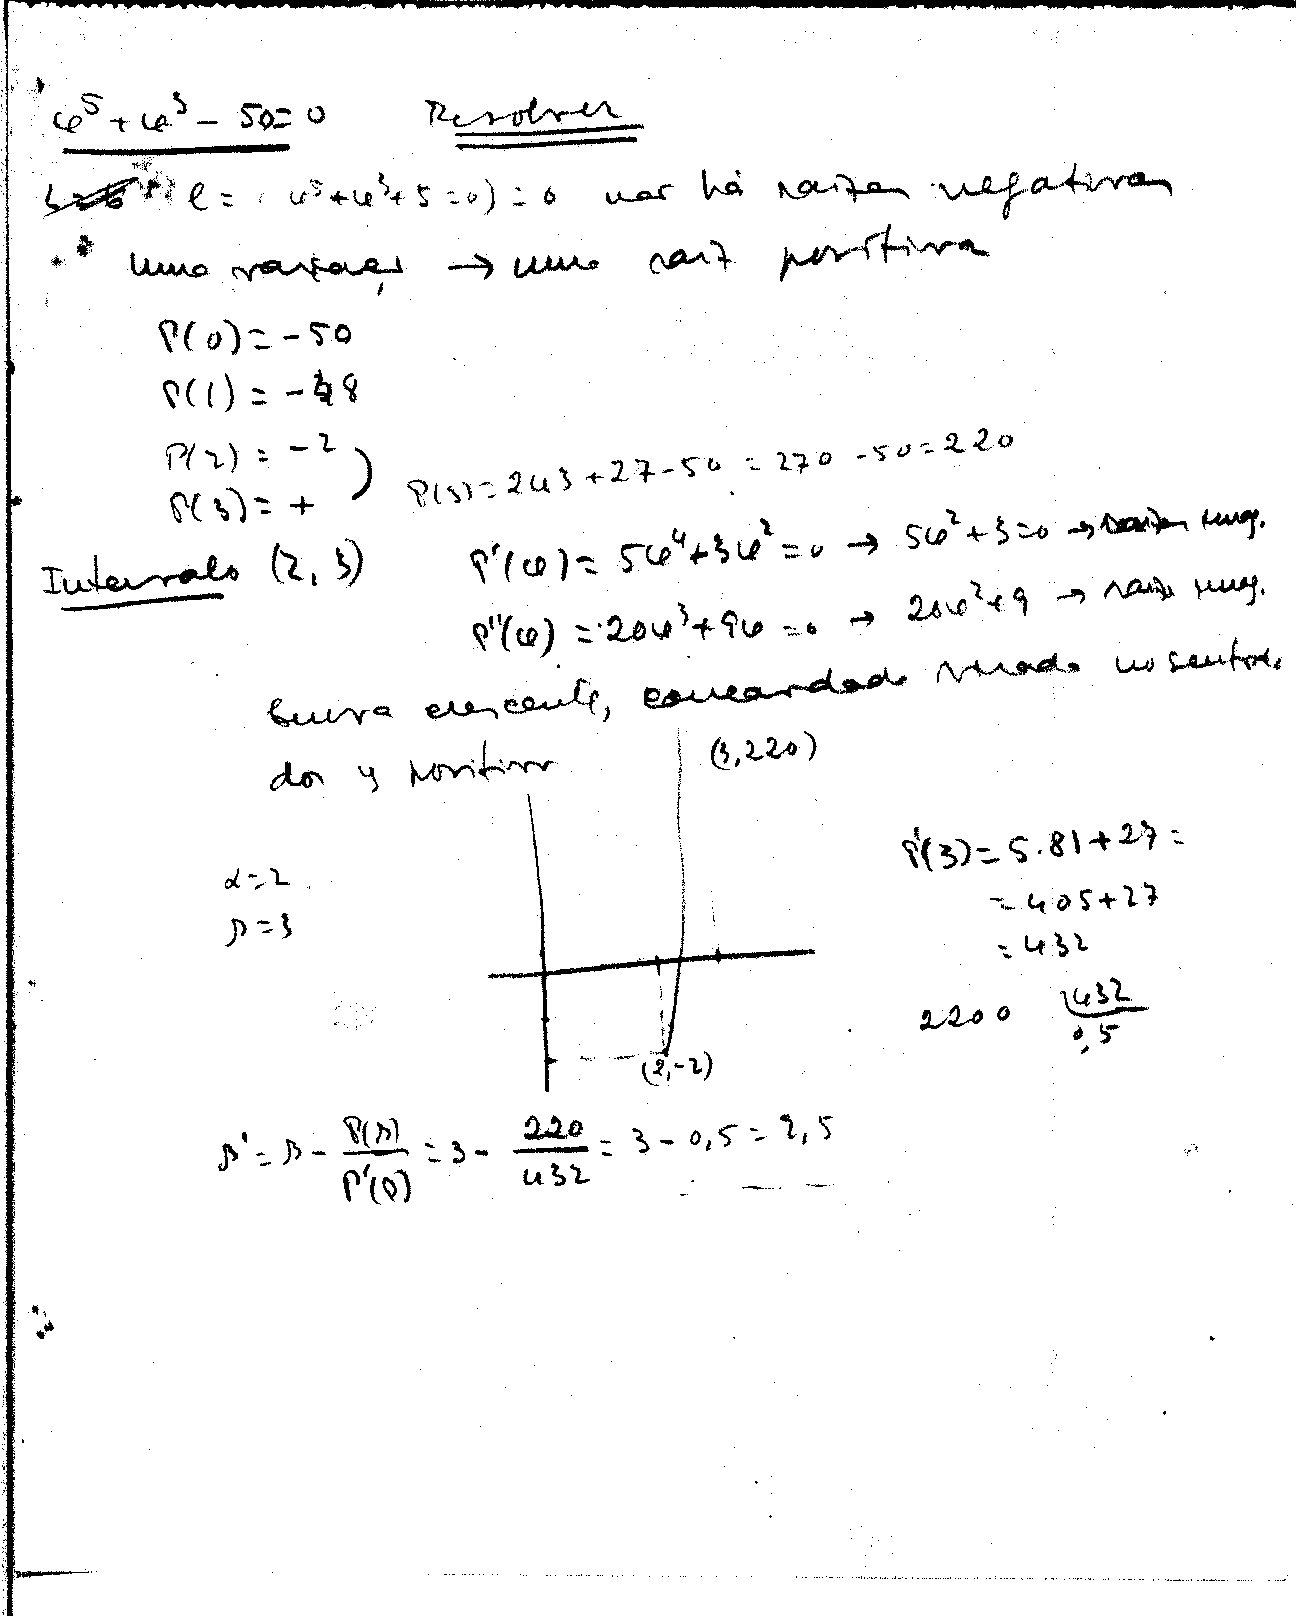 φ⁵ + φ³ - 50 = 0 Resolver
l = (φ⁵ + φ³ + 5 = 0) = 0 não há raízes negativas
uma variação → uma raiz positiva
P(0) = -50
P(1) = -48
P(2) = -2
P(3) = +
P(3) = 243 + 27 - 50 = 270 - 50 = 220
Intervalo (2, 3)
P'(φ) = 5φ⁴ + 3φ² = 0 → 5φ² + 3 = 0 → raízes imag.
P''(φ) = 20φ³ + 9φ = 0 → 20φ² + 9 → raíz imag.
Curva crescente, concavidade virada no sentido
dos y positivos
(3, 220)
α = 2
β = 3
(2, -2)
P'(3) = 5.81 + 27 =
= 405 + 27
= 432
2200 | 432
0,5
β' = β - P(β)/P'(β) = 3 - 220/432 = 3 - 0,5 = 2,5